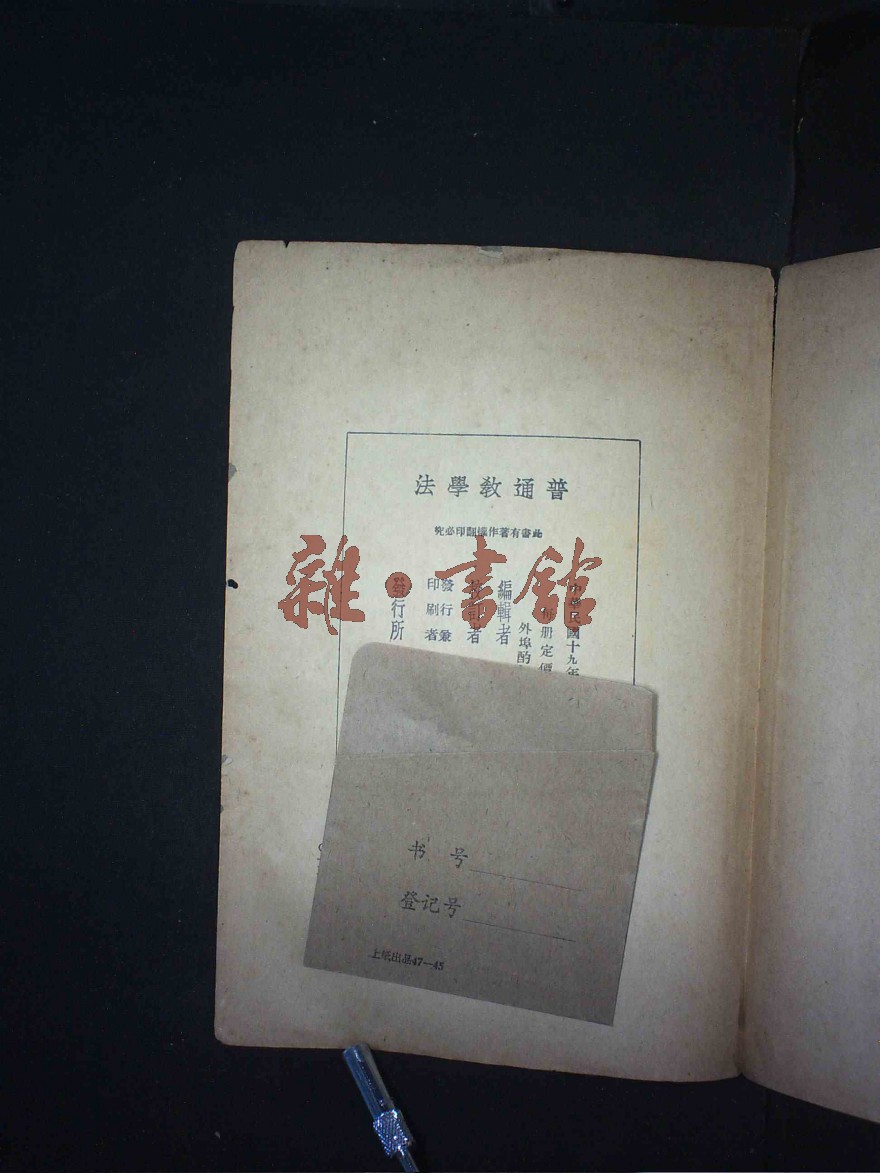 普通教學法
此書有著作權翻印必究
中華民國十九年
每册定價
外埠酌
編輯者
校訂者
發行兼
印刷者
發行所
雜·書館
书 号
登记号
上纸出品47—45